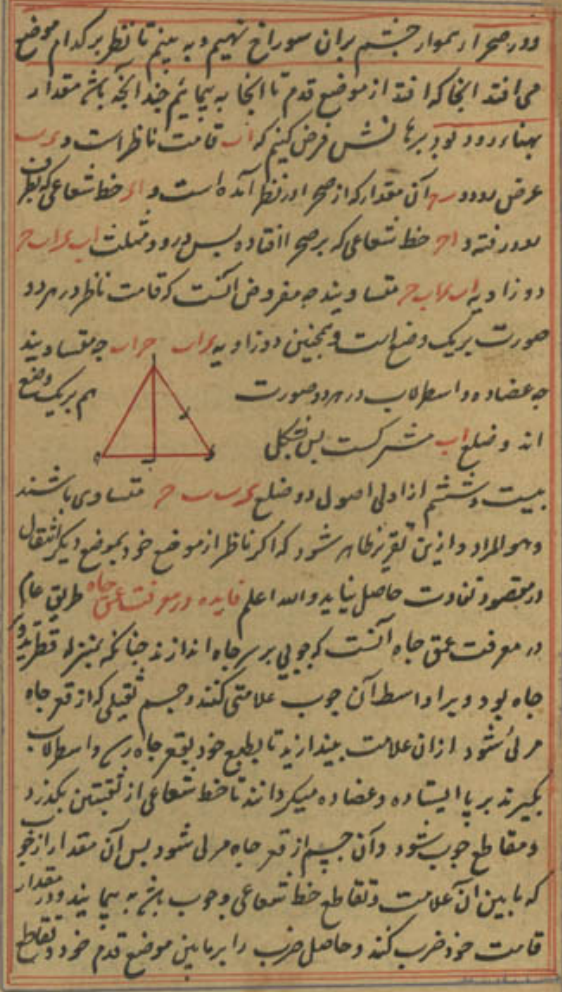 ودر صحرا هموار چشم بران سوراخ نهیم و به بینیم تا نظر بر کدام موضع
می افتد انجا که افتد از موضع قدم تا انجا به پیمائیم چندانچه باشد مقدار
بهناء رود بود برهانش فرض کنیم که اب قامت ناظر است و
عرض رود و آن مقدار که از صحرا در نظر آمده است و خط شعاعی که بطرف
رود رفته و اح خط شعاعی که بر صحرا افتاده پس در دو مثلث
دو زاویه متساویند چه مفروض انست که قامت ناظر در هر دو
صورت بر یک وضع است و همچنین دو زاویه متساویند
چه عضاده و اسطرلاب در هر دو صورت هم بر یک وضع
اند و ضلع اب مشترکست پس بشکل
بیست و ششم از اولی اصول دو ضلع متساوی باشند
وهو المراد و ازین تقریر ظاهر شود که اگر ناظر از موضع خود بموضع دیگر انتقال
در مقصود تفاوت حاصل نیاید والله اعلم فایده در معرفت عمق چاه طریق عام
در معرفت عمق چاه آنست که چوبی بر سر چاه اندازند چنانکه بمنزله قطر
چاه بود و بر اواسط آن چوب علامتی کنند و جسم ثقیلی که از قعر چاه
مرئی شود ازان علامت بیندازند تا بطبع خود بقعر چاه رسد و اسطرلاب
بگیرند بر پا ایستاده و عضاده میگردانند تا خط شعاعی از ثقبتین بگذرد
و مقاطع چوب شود و آن جسم از قعر چاه مرئی شود پس آن مقدار از چوب
که مابین آن علامت و تقاطع خط شعاعی و چوب باشد به پیمایند و در مقدار
قامت خود ضرب کند و حاصل ضرب را بر مابین موضع قدم خود و تقاطع